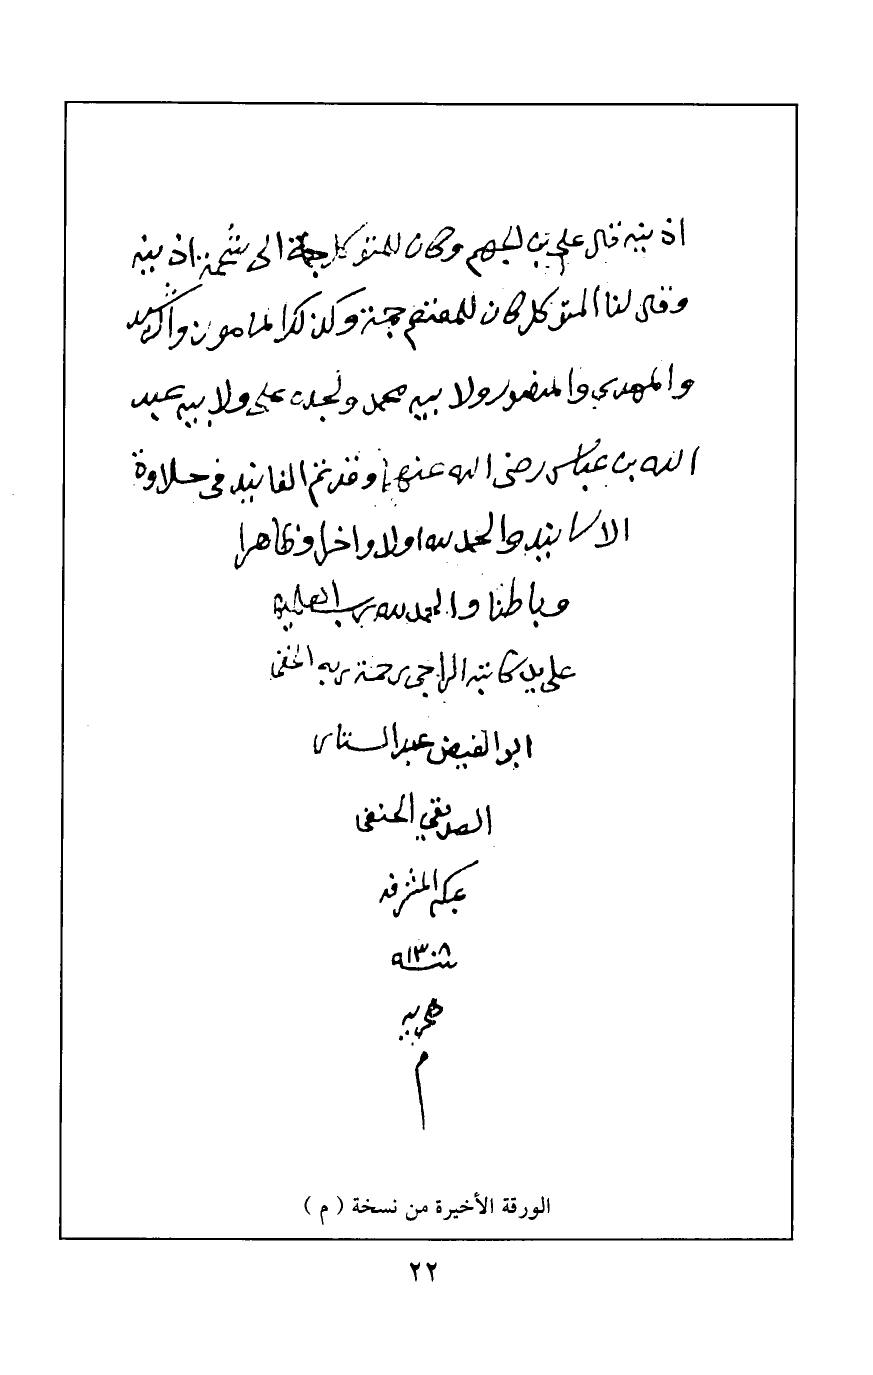 اذنيه قال علي بن الجهم وكان للمتوكل جمة الى شحمة اذنيه
وقال لنا المتوكل كان للمعتصم جمة وكذلك للمامون والرشيد
والمهدي والمنصور ولابيه محمد ولجده علي ولابيه عبد
الله بن عباس رضى الله عنهما وقد تم الفانيد فى حلاوة
الاسانيد والحمد لله اولا واخرا وظاهرا
وباطنا والحمد لله رب العلمين
على يد كاتبه الراجى رحمة ربه الخفى
ابو الفيض عبد الستار
الصديقي الحنفى
بمكة المشرفه
سنه ١٣٠٨
هجريه
م
الورقة الأخيرة من نسخة ( م )
٢٢